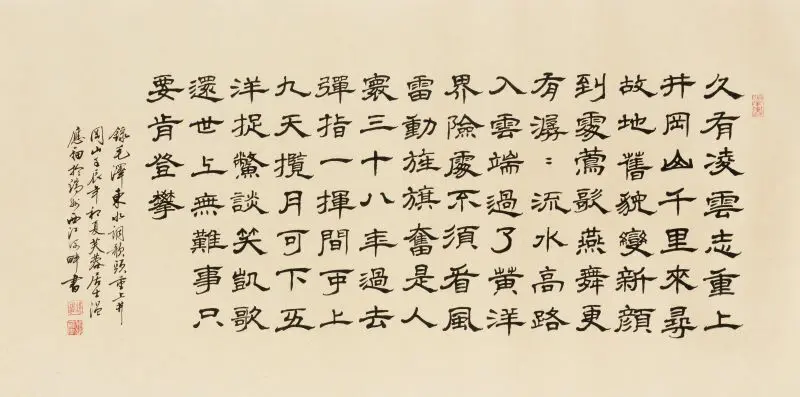 久有凌雲志重上
井岡山千里來尋
故地舊貌變新顏
到處鶯歌燕舞更
有潺〻流水高路
入雲端過了黃洋
界險處不須看風
雷動旌旗奮是人
寰三十八年過去
彈指一揮間可上
九天攬月可下五
洋捉鱉談笑凱歌
還世上無難事只
要肯登攀
錄毛澤東水調歌頭重上井
岡山壬辰年初夏芙蓉居士溫
應於端州西江河畔書